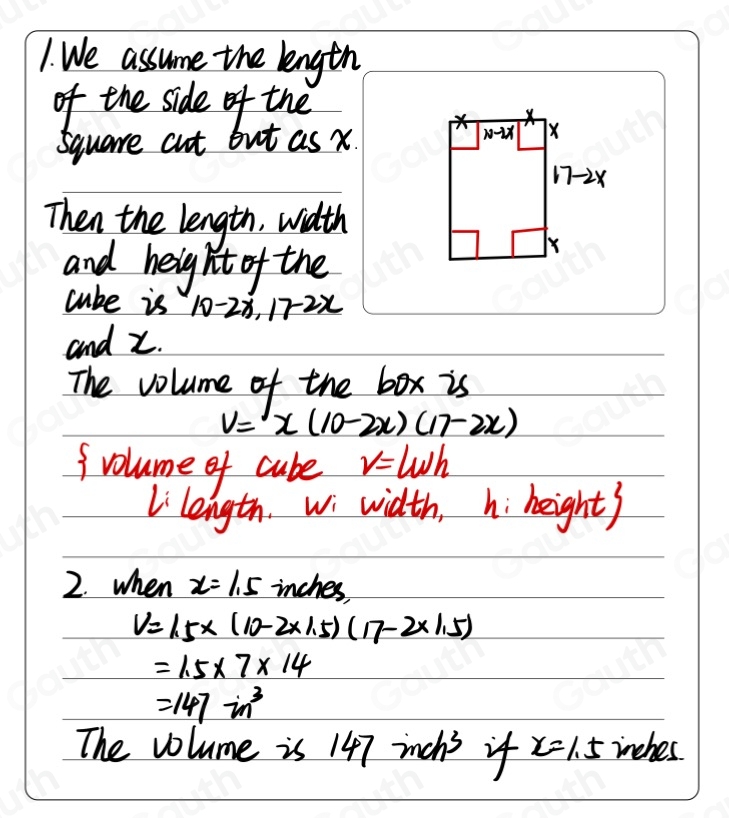 1. We assume the length
of the side of the
square cut out as x.
x 10-2x x x
17-2x
x
Then the length, width
and height of the
cube is 10-2x, 17-2x
and x.
The volume of the box is
V= x (10-2x) (17-2x)
{ volume of cube v=lwh
l: length. w: width, h: height}
2. when x=1.5 inches,
V=1.5× (10-2×1.5) (17-2×1.5)
=1.5×7×14
=147 in³
The volume is 147 inch³ if x=1.5 inches.
Gauth